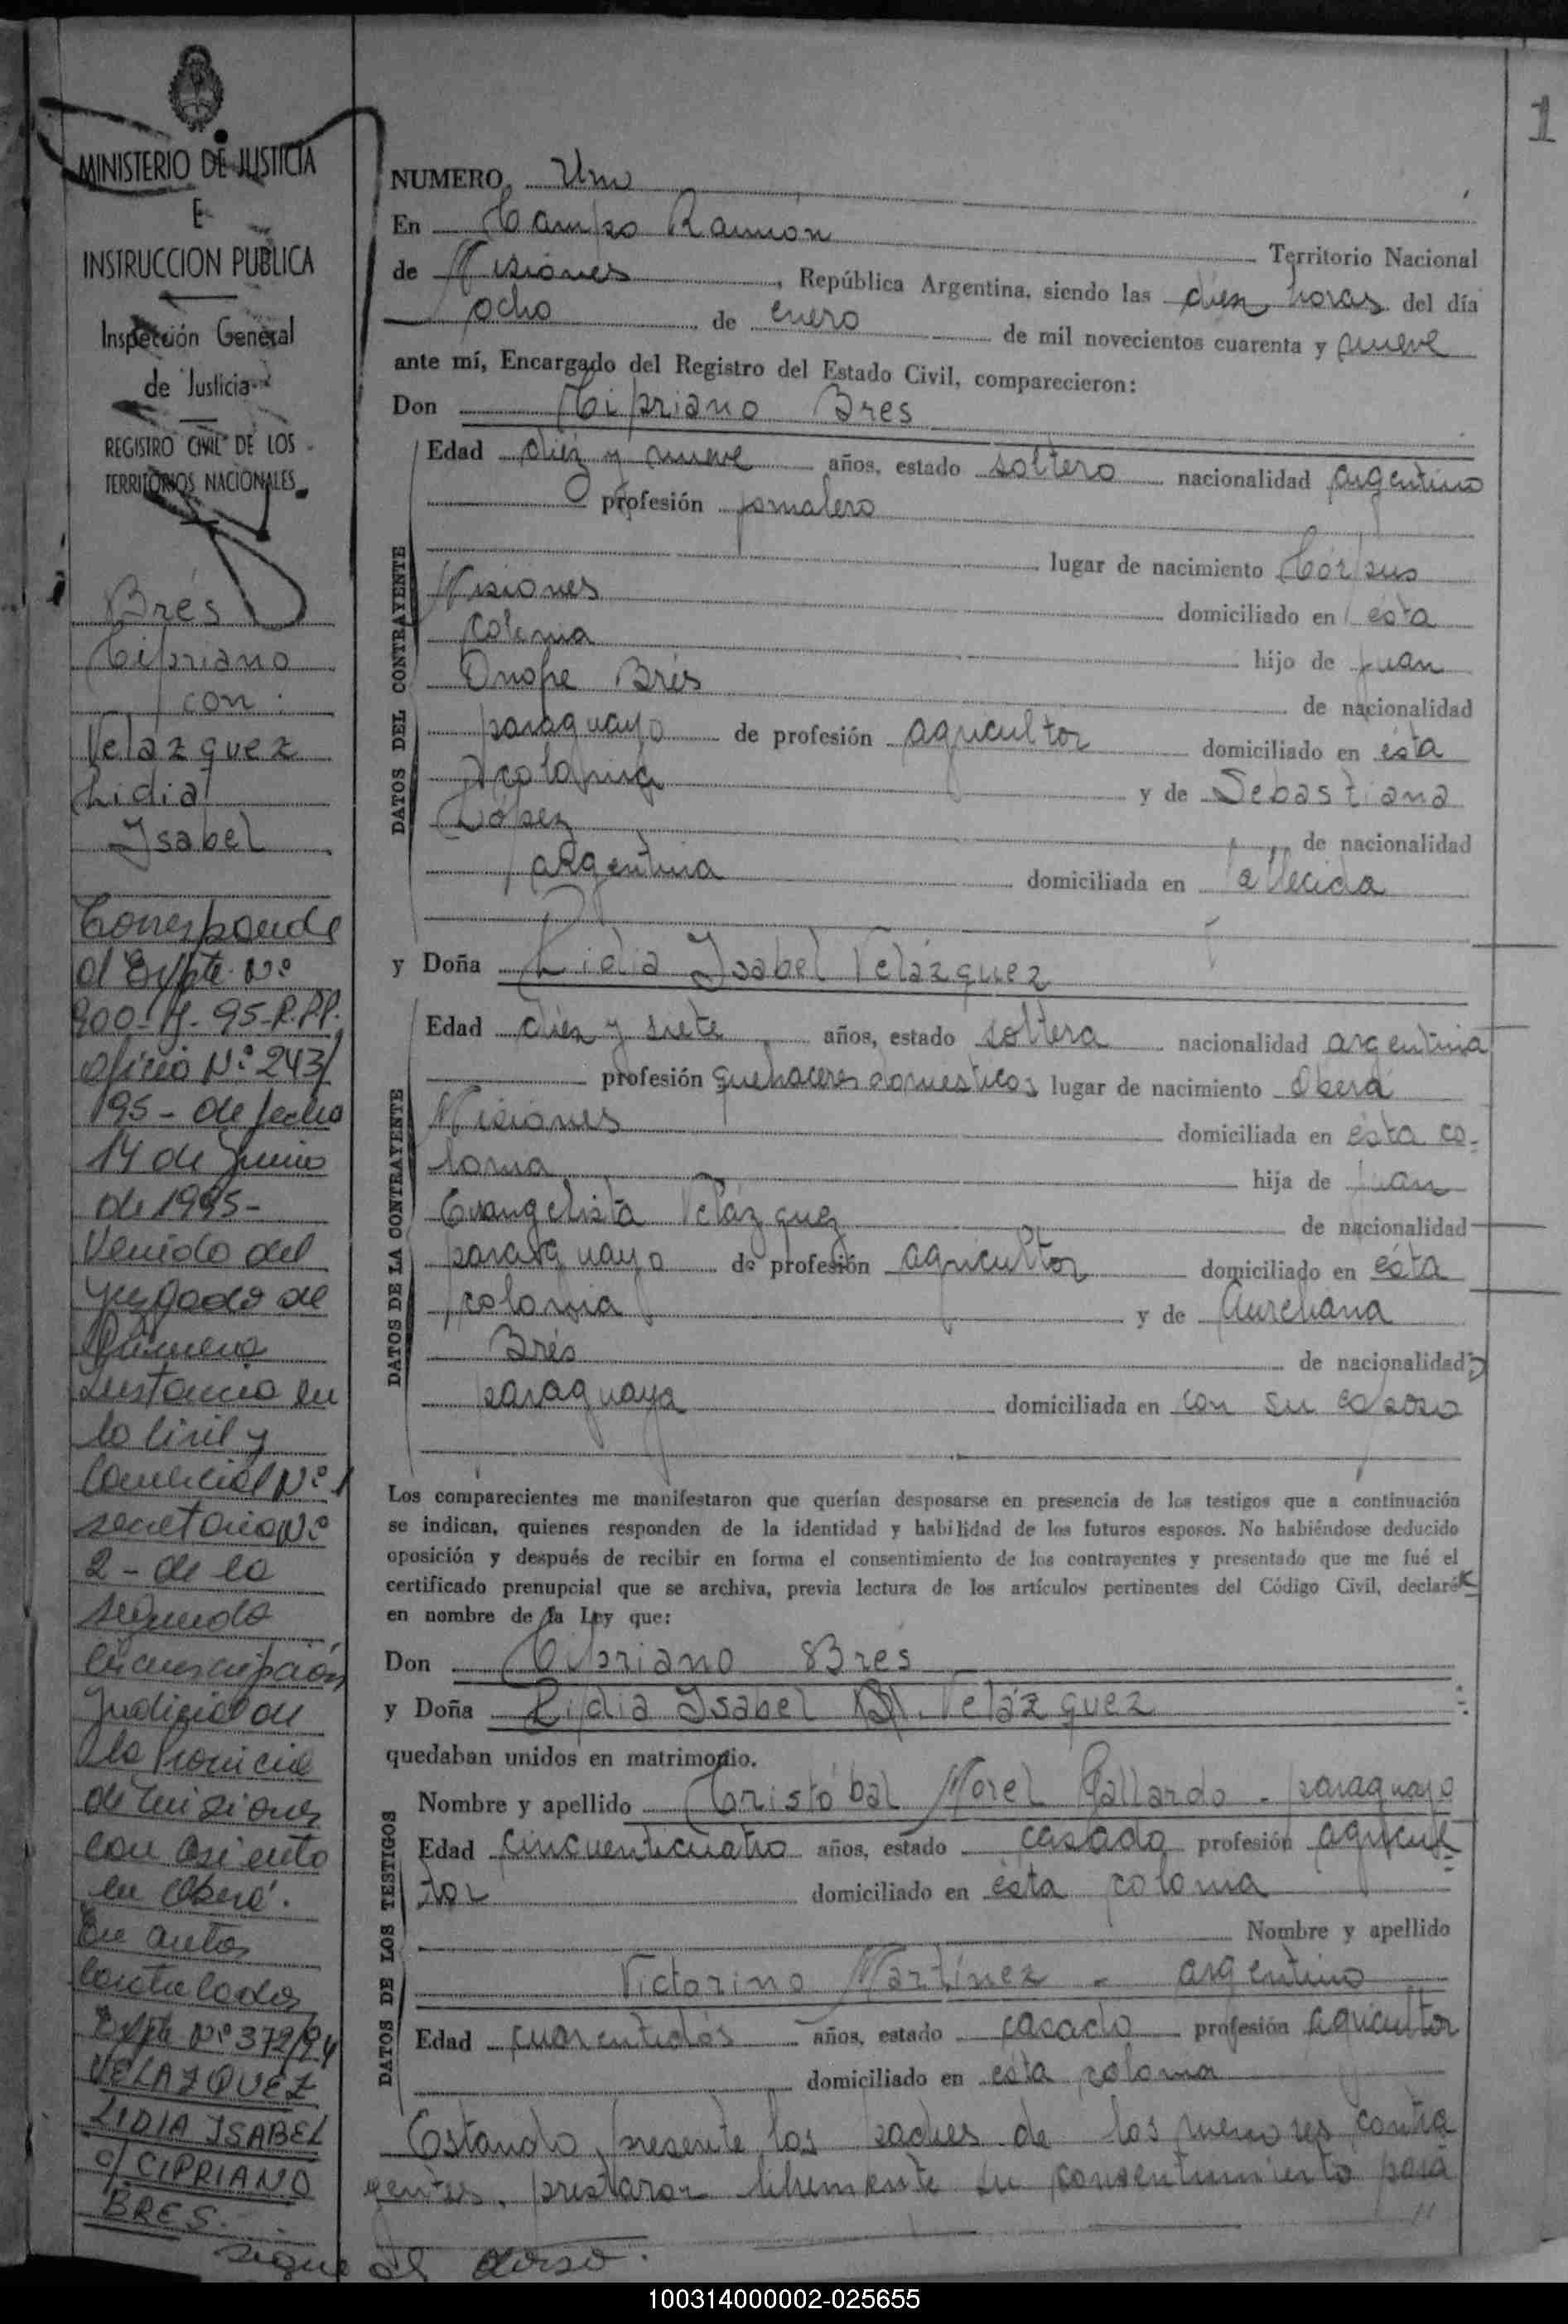 1
MINISTERIO DE JUSTICIA
E
INSTRUCCION PUBLICA
Inspección General
de Justicia
REGISTRO CIVIL DE LOS
TERRITORIOS NACIONALES
Brés
Cipriano
con:
Velázquez
Lidia
Isabel
Corresponde
al Expte. Nº
900- -95-R.P.P.
oficio Nº 243/
95- de fecha
14 de Junio
de 1995-
Venido del
Juzgado de
Primera
Instancia en
lo Civil y
Comercial Nº 1
secretaria Nº
2- de la
segunda
circunscripción
Judicial de
la Provincia
de Misiones
con asiento
en Oberá.
En autos
caratulados
Expte Nº 372/94
VELAZQUEZ
LIDIA ISABEL
c/ CIPRIANO
BRES.
sigue al dorso.
NUMERO Uno
En Campo Ramón Territorio Nacional
de Misiones, República Argentina, siendo las diez horas del día
ocho de enero de mil novecientos cuarenta y nueve
ante mí, Encargado del Registro del Estado Civil, comparecieron:
Don Cipriano Bres
DATOS DEL CONTRAYENTE
Edad diéz y nueve años, estado soltero nacionalidad argentino
profesión jornalero
lugar de nacimiento Córpus
Misiones domiciliado en ésta
colonia hijo de Juan
Onofre Brés de nacionalidad
paraguayo de profesión agricultor domiciliado en ésta
colonia y de Sebastiana
López de nacionalidad
argentina domiciliada en fallecida
y Doña Lidia Isabel Velázquez
DATOS DE LA CONTRAYENTE
Edad diéz y siete años, estado soltera nacionalidad argentina
profesión quehaceres domésticos lugar de nacimiento Oberá
Misiones domiciliada en ésta co-
lonia hija de Juan
Evangelista Velázquez de nacionalidad
paraguayo de profesión agricultor domiciliado en ésta
colonia y de Aureliana
Brés de nacionalidad
paraguaya domiciliada en con su esposo
Los comparecientes me manifestaron que querían desposarse en presencia de los testigos que a continuación
se indican, quienes responden de la identidad y habilidad de los futuros esposos. No habiéndose deducido
oposición y después de recibir en forma el consentimiento de los contrayentes y presentado que me fué el
certificado prenupcial que se archiva, previa lectura de los artículos pertinentes del Código Civil, declaré
en nombre de la Ley que:
Don Cipriano Brés
y Doña Lidia Isabel Velázquez
quedaban unidos en matrimonio.
DATOS DE LOS TESTIGOS
Nombre y apellido Cristóbal Morel Gallardo - paraguayo
Edad cincuenticuatro años, estado casado profesión agricul-
tor domiciliado en ésta colonia
Nombre y apellido
Victorino Martínez - argentino
Edad cuarentidós años, estado casado profesión agricultor
domiciliado en ésta colonia
Estando presente los padres de los menores contra
yentes, prestaron libremente su consentimiento para
100314000002-025655